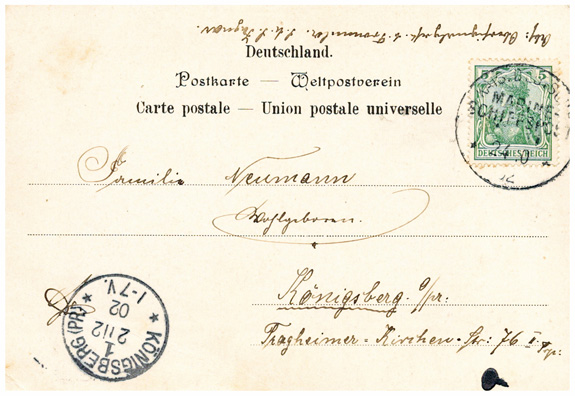 Abs:
Deutschland.
Postkarte — Weltpostverein
Carte postale — Union postale universelle
MARINE
SCHIFFSPOST
DEUTSCHES REICH
Familie Neumann
Wohlgeboren.
Königsberg o/pr.
Tragheimer-Kirchen-Str: 76 I
KÖNIGSBERG (PR.)
1
2 1 12
02
1-7 V.